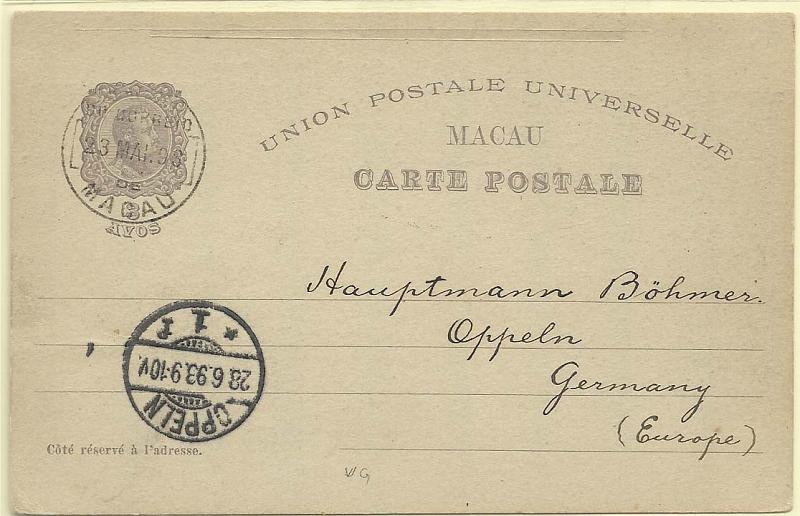 UNION POSTALE UNIVERSELLE
MACAU
CARTE POSTALE
23 MAI. 93
DE
MACAU
3
AVOS
Hauptmann Böhmer.
Oppeln
Germany
(Europe)
OPPELN
28.6.93.9-10V.
* 1 f
Côté réservé à l'adresse.
VG